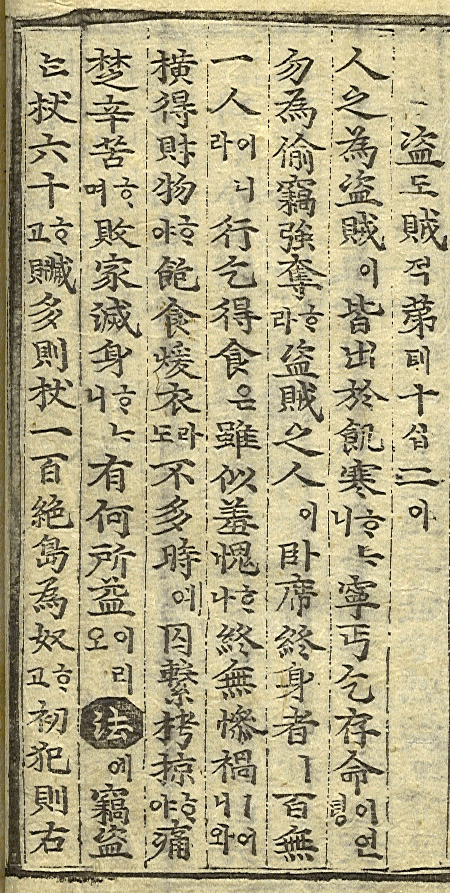 盜도賊적第뎨十십二이
人之為盜賊이皆出於飢寒ᄒᆞᄂᆞ니寧丐乞存命이언뎡
勿為偷竊強奪ᄒᆞ라盜賊之人이臥席終身者ㅣ百無
一人이니라行乞得食은雖似羞愧ᄒᆞ나終無慘禍ㅣ어니와
橫得財物ᄒᆞ야飽食煖衣라도不多時에囚繫拷掠ᄒᆞ야痛
楚辛苦ᄒᆞ며敗家滅身ᄒᆞᄂᆞ니有何所益이리오法에竊盜
는杖六十ᄒᆞ고贓多則杖一百絶島為奴ᄒᆞ고初犯則右